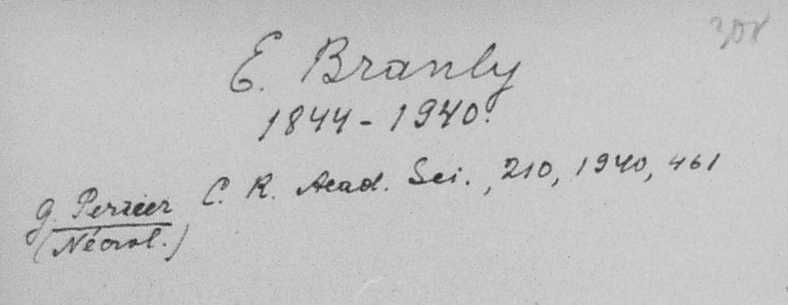 308
E. Branly
1844-1940.
G. Perrier C. R. Acad. Sci., 210, 1940, 461
(Nécrol.)